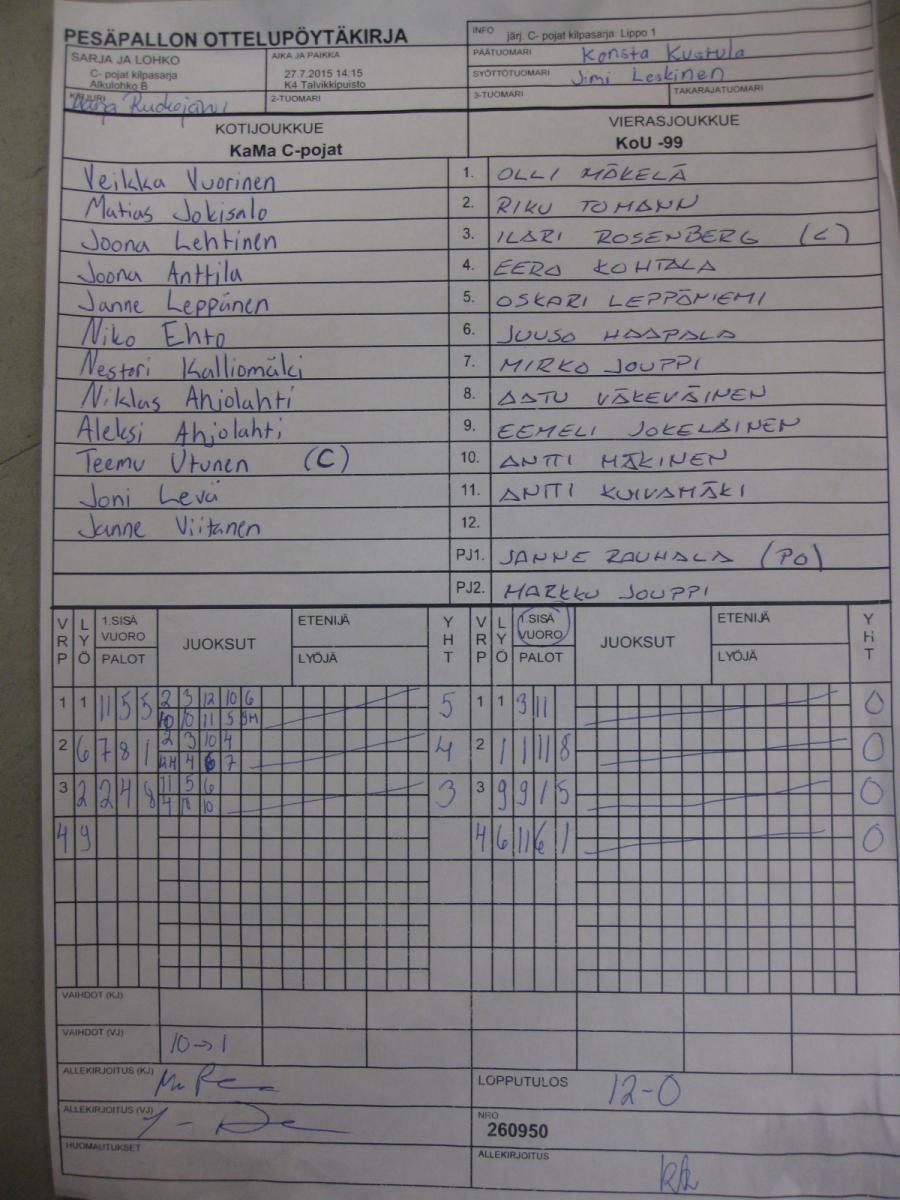 PESÄPALLON OTTELUPÖYTÄKIRJA
INFO järj. C- pojat kilpasarja: Lippo 1
SARJA JA LOHKO
C- pojat kilpasarja
Alkulohko B
AIKA JA PAIKKA
27.7.2015 14:15
K4 Talvikkipuisto
PÄÄTUOMARI Konsta Kustula
SYÖTTÖTUOMARI Jimi Leskinen
KIRJURI
2-TUOMARI
3-TUOMARI
TAKARAJATUOMARI
KOTIJOUKKUE
KaMa C-pojat
VIERASJOUKKUE
KoU -99
Veikka Vuorinen 1. OLLI MÄKELÄ
Matias Jokisalo 2. RIKU TOMANN
Joona Lehtinen 3. ILARI ROSENBERG (C)
Joona Anttila 4. EERO KOHTALA
Janne Leppänen 5. OSKARI LEPPÄNIEMI
Niko Ehto 6. JUUSO HAAPALA
Nestori Kalliomäki 7. MIRKO JOUPPI
Niklas Ahjolahti 8. AATU VÄKEVÄINEN
Aleksi Ahjolahti 9. EEMELI JOKELAINEN
Teemu Utunen (C) 10. ANTTI MÄKINEN
Joni Levä 11. ANTTI KUIVAMÄKI
Janne Viitanen 12.
PJ1. JANNE RAUHALA (PO)
PJ2. MARKKU JOUPPI
VRP LYÖ 1.SISÄ VUORO PALOT JUOKSUT ETENIJÄ LYÖJÄ YHT VRP LYÖ 1.SISÄ VUORO PALOT JUOKSUT ETENIJÄ LYÖJÄ YHT
1 1 11 5 5 2 3 12 10 6 5 1 1 3 11 0
10 11 5
2 6 7 8 1 2 3 10 4 4 2 1 1 11 8 0
4 7
3 2 2 4 8 11 5 6 3 3 9 9 1 5 0
4 10
4 9 4 6 11 6 1 0
VAIHDOT (KJ)
VAIHDOT (VJ) 10→1
ALLEKIRJOITUS (KJ)
LOPPUTULOS 12-0
ALLEKIRJOITUS (VJ)
NRO
260950
HUOMAUTUKSET
ALLEKIRJOITUS